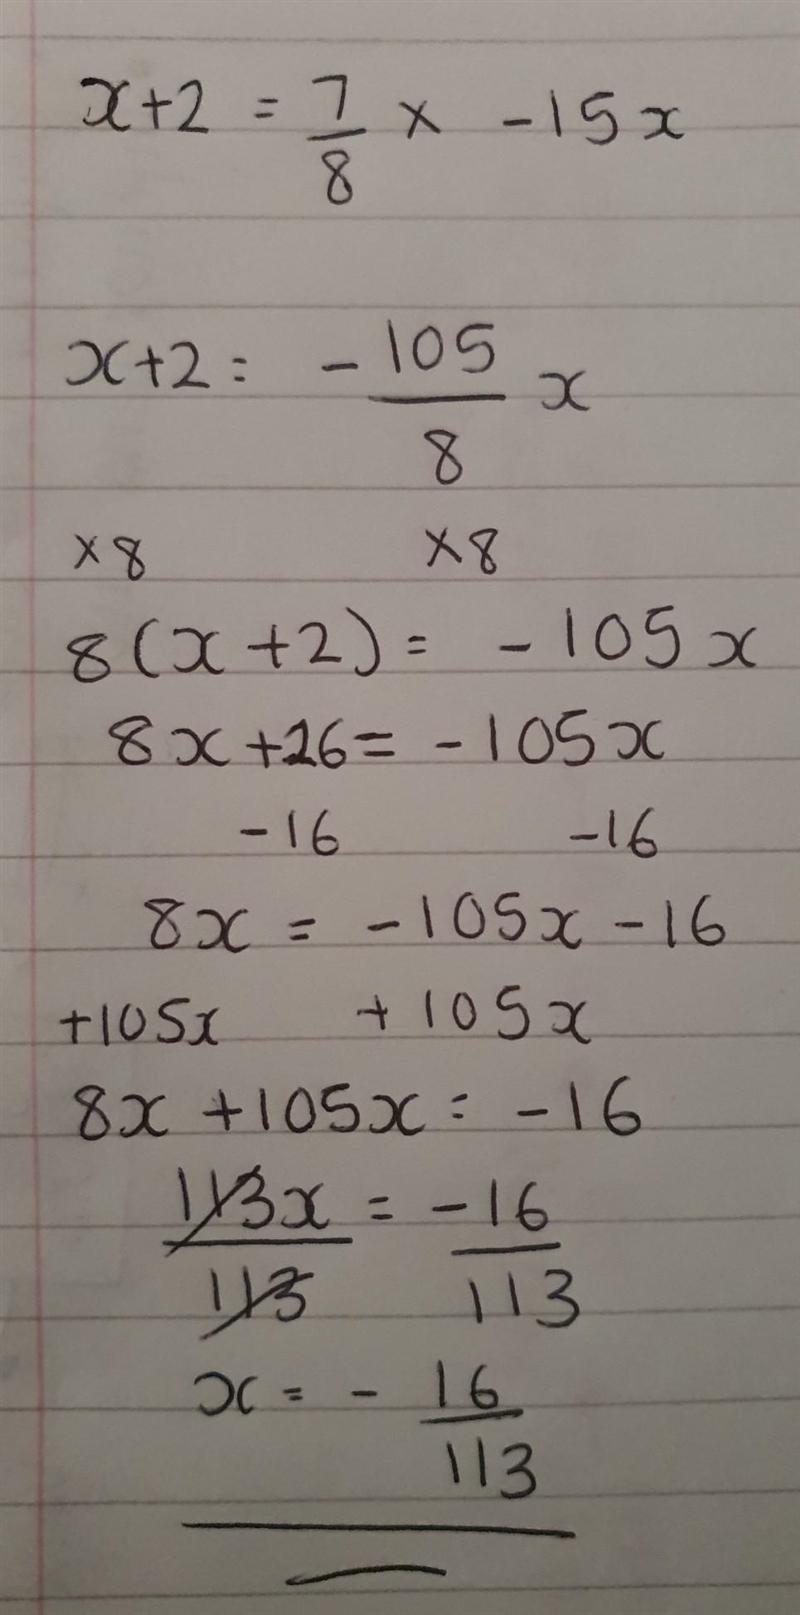 x+2 = 7/8 × -15x
x+2 = -105/8 x
×8 ×8
8(x+2) = -105x
8x+26 = -105x
-16 -16
8x = -105x -16
+105x +105x
8x +105x = -16
113x/113 = -16/113
x = -16/113